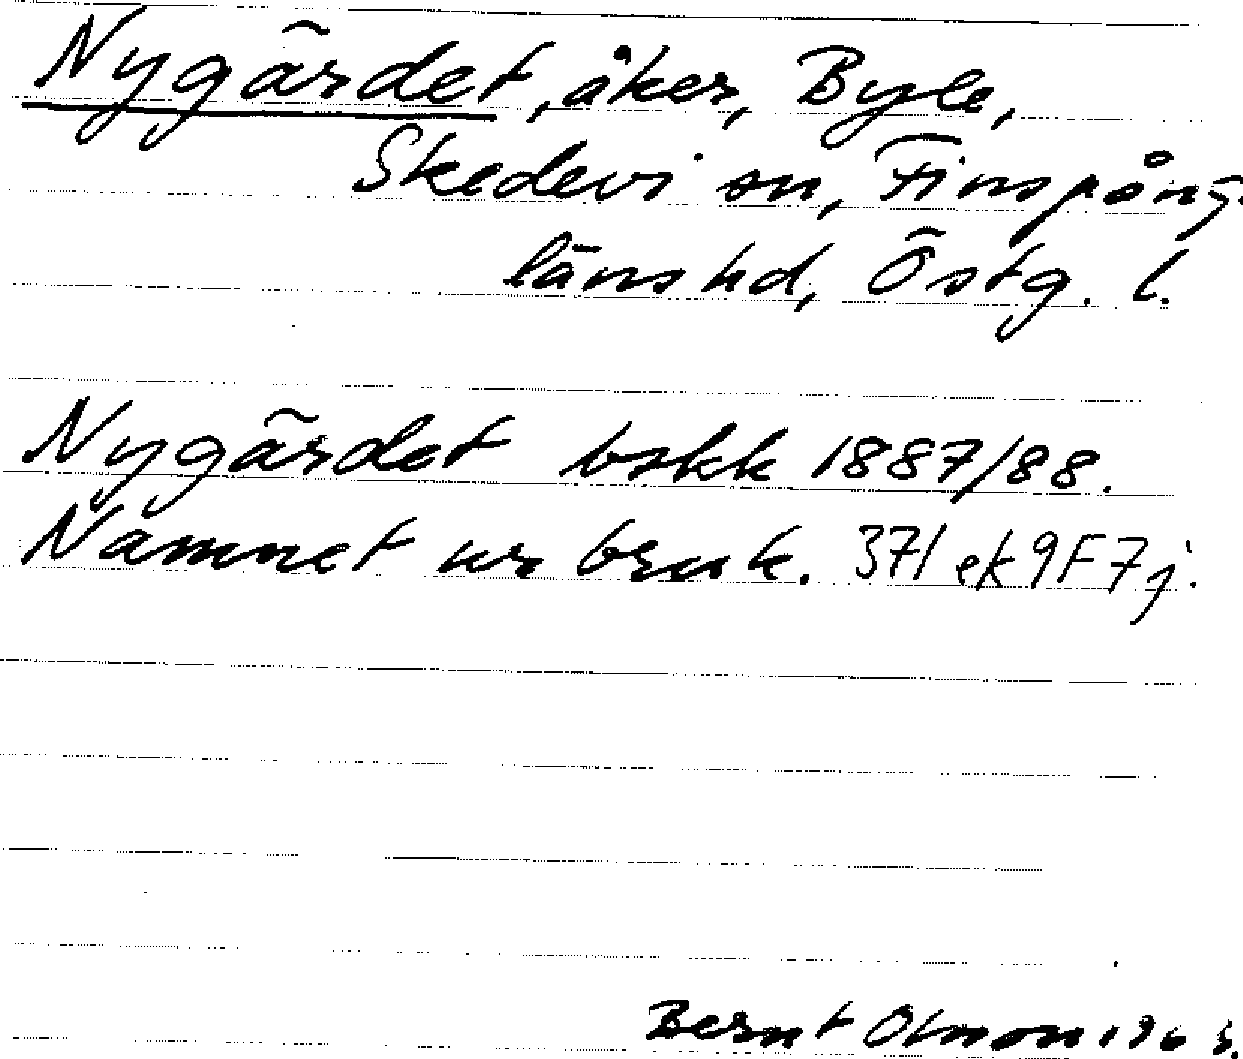 Nygärdet, åker, Byle,
Skedevi sn, Finspång.
läns hd, Östg. l.
Nygärdet bskk 1887/88.
Namnet ur bruk. 371 ek 9F7j.
Bernt Olsson 196